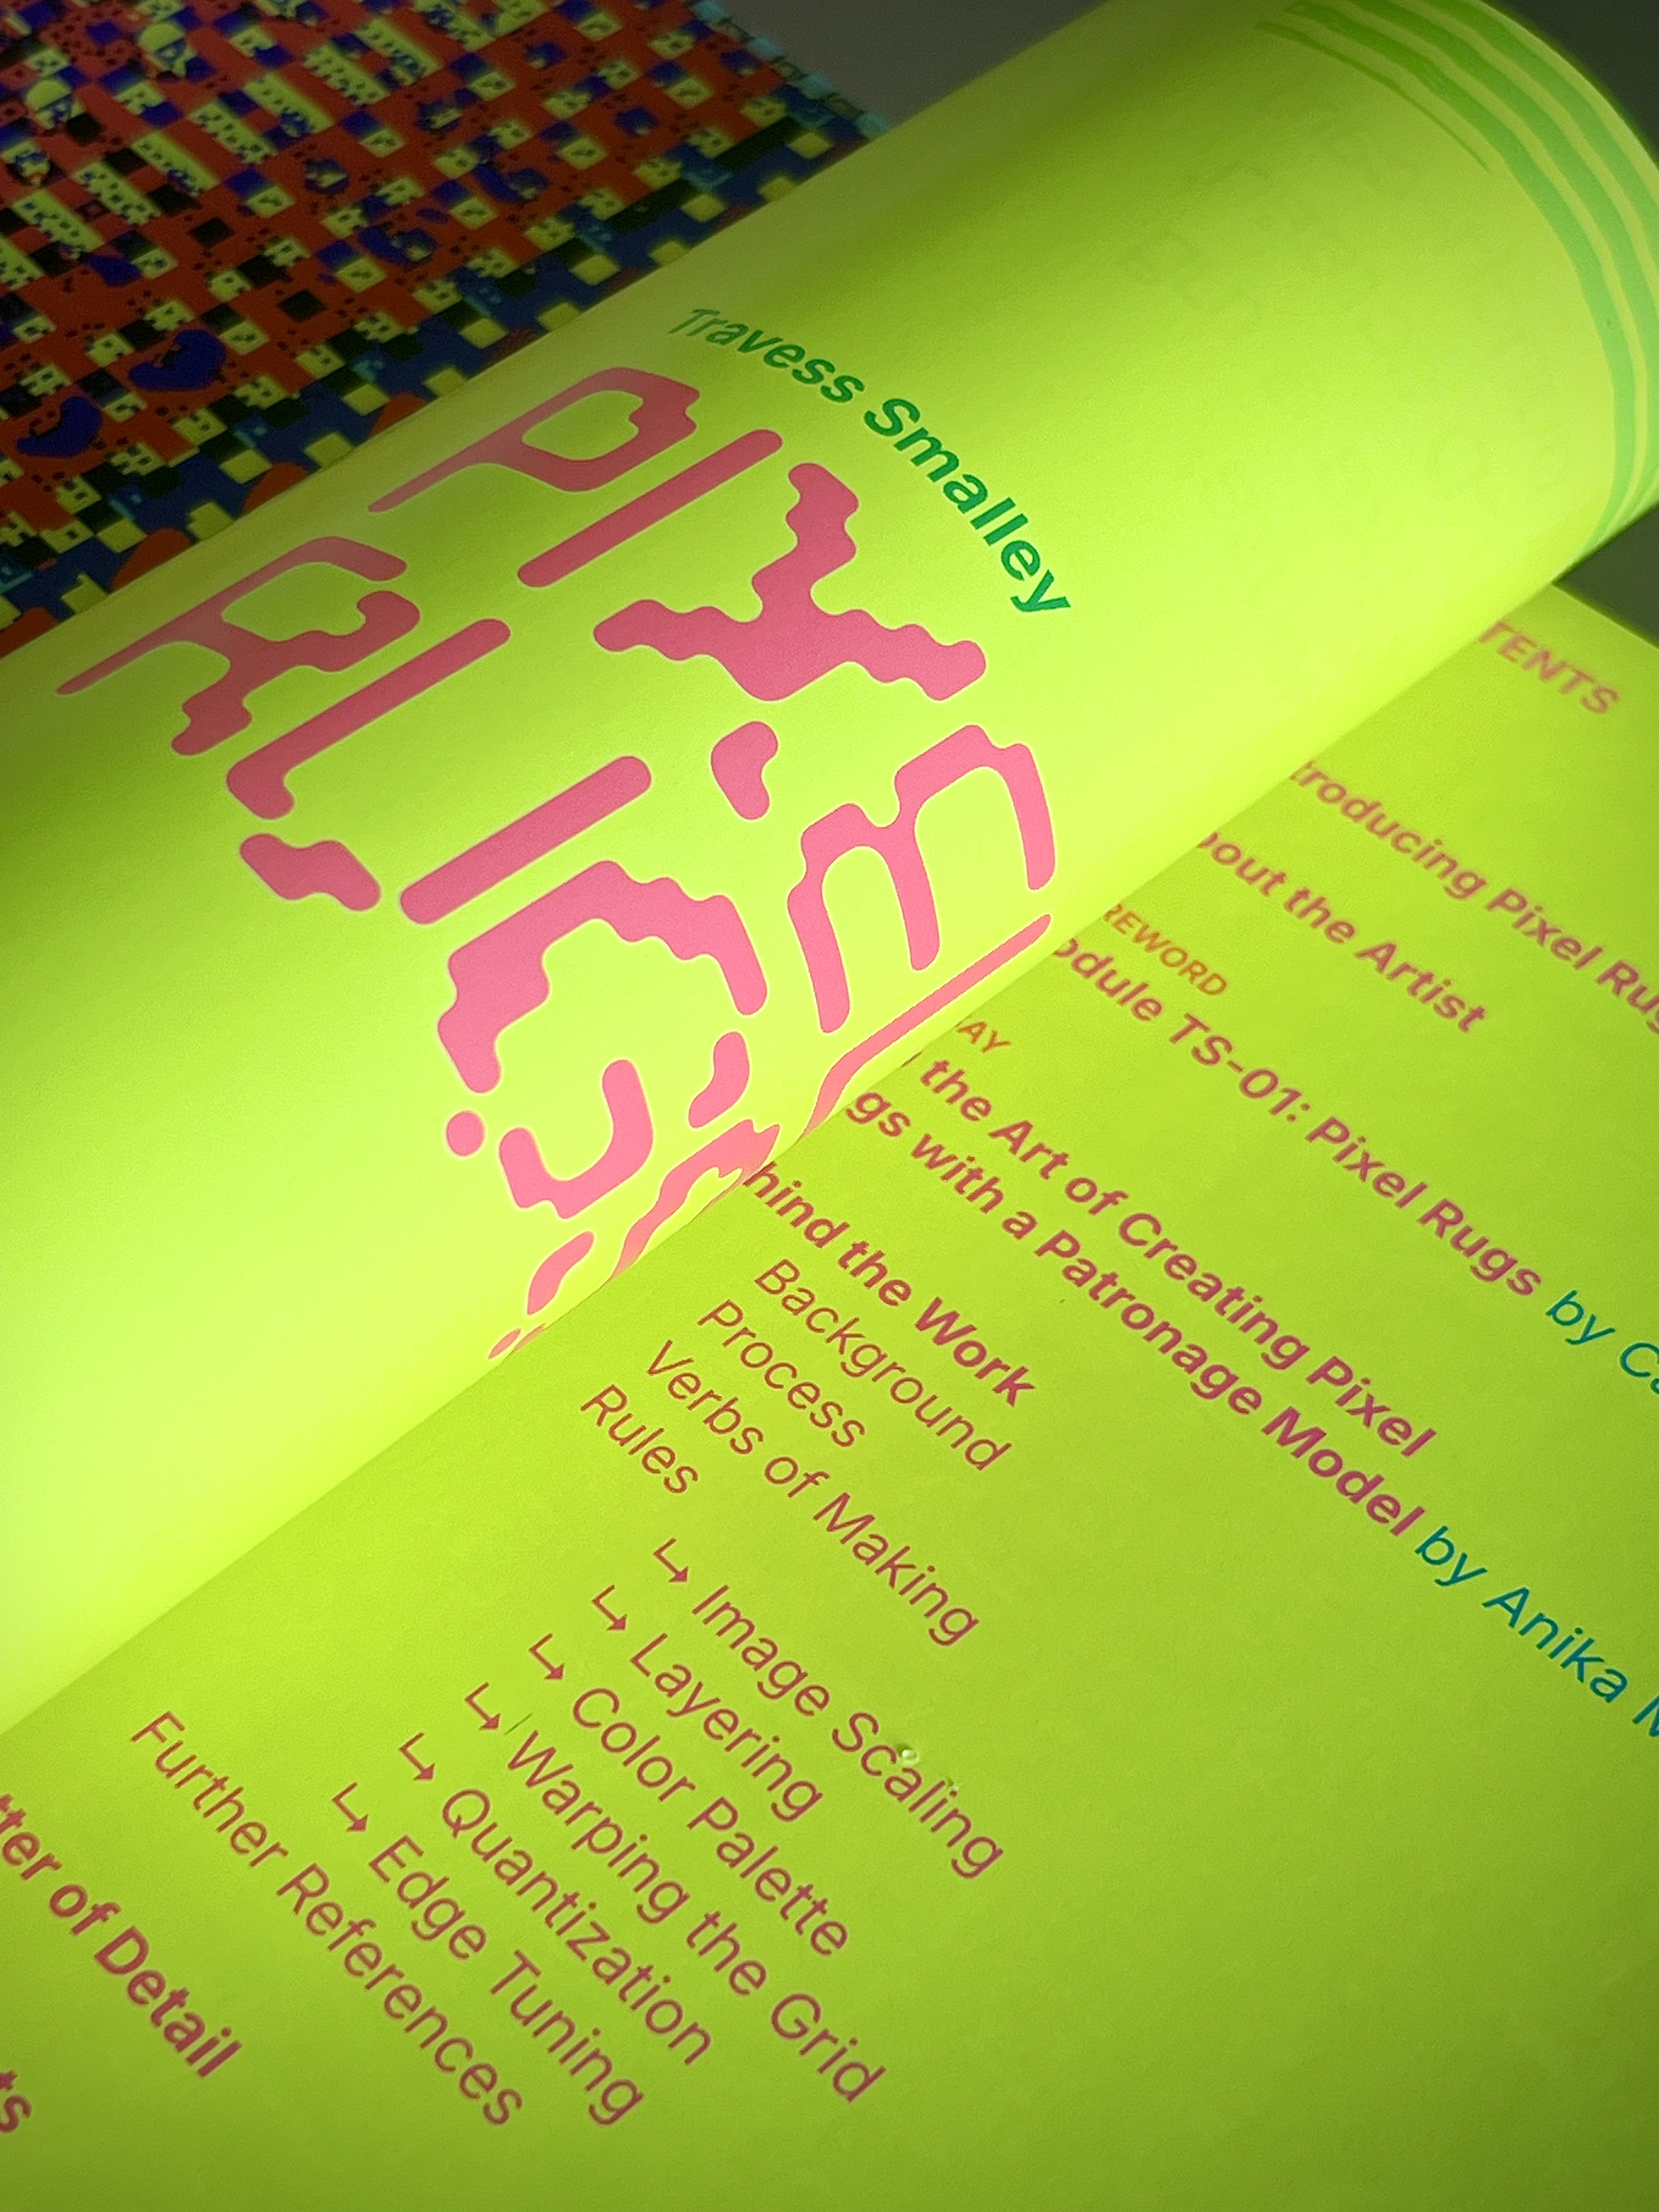 Travess Smalley
PIXEL
RUGS
TENTS
troducing Pixel Rug
bout the Artist
REWORD
odule TS-01: Pixel Rugs by Ca
AY
the Art of Creating Pixel
gs with a Patronage Model by Anika M
hind the Work
Background
Process
Verbs of Making
Rules
↳ Image Scaling
↳ Layering
↳ Color Palette
↳ Warping the Grid
↳ Quantization
↳ Edge Tuning
Further References
tter of Detail
ts